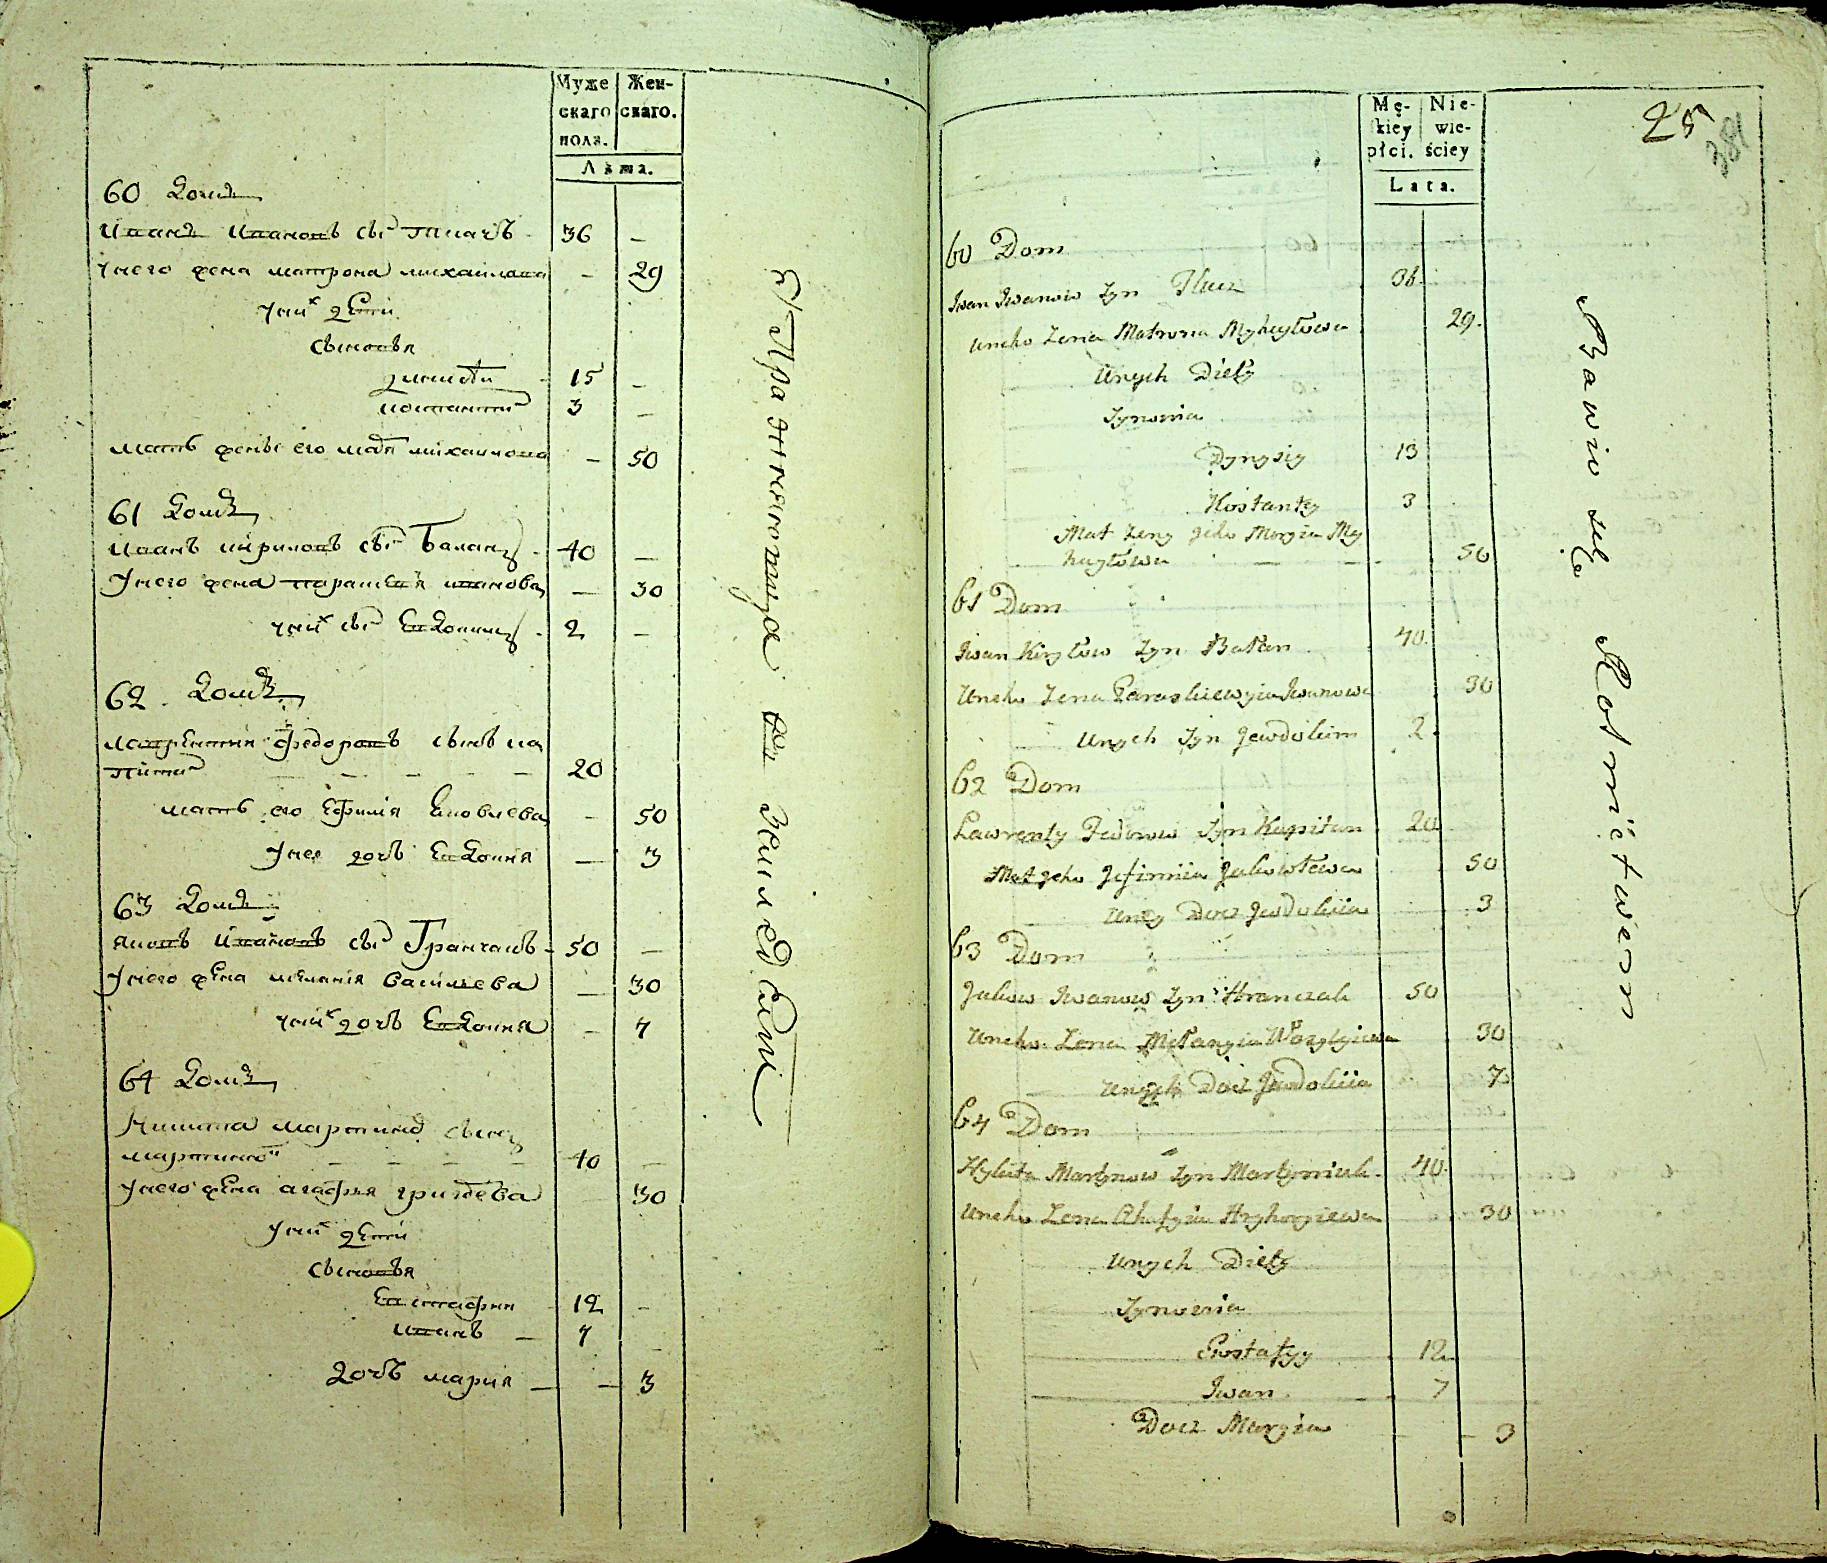 Муже
скаго
пола.
Жен-
скаго.
Лѣта.
60 Домъ
Иванъ Ивановъ сынъ Ткачъ 36 —
У него жена матрона михайлова — 29
У них дети
сыновья
Дионисти 15 —
Костантий 3 —
мать жены его марія михаилова — 50
61 Домъ
Иванъ кириловъ сынъ Баланъ 40 —
У него жена параскевия иванова — 30
У них сынъ Евдокимъ 2 —
62 Домъ
лаврентий федоровъ сынъ ка
питанъ — — — — 20
мать его Ефимія Яковлева — 50
У нее дочь Евдокия — 3
63 Домъ
яковъ Ивановъ сынъ Гранчакъ 50 —
У него жена мелания василиева — 30
У них дочь Евдокия — 7
64 Домъ
Никита мартиновъ сынъ
мартинюкъ — — — — 40 —
У него жена агафия григорева 30
У них дети
сыновья
Евстафии 12 —
иванъ — 7
дочь мария — — 3
Упражняютца въ земледелии
Mę-
skiey
płci.
Nie-
wie-
ściey
Lata.
25
381
60 Dom
Iwan Iwanow Syn Tkacz 36
Uneho Zena Matrona Myhayłowa 29.
Unych Diety
Synowia
Dynysiy 13
Kostanty 3
Mat Zeny Jeho Maryia My
hayłowa — — 50
61 Dom
Iwan Kiryłow Syn Bałan 40.
Uneho Zena Paraskiewyia Iwanowa 30
Unych Syn Jewdokim 2.
62 Dom
Ławrenty Fedorow Syn Kapitan 20
Mat Jeho Jefimiia Jakowlewa 50
Uney Docz Jewdokiia 3
63 Dom
Jakow Iwanow Syn Hranczak 50
Uneho Zena Mełanyia Wasylyiewa 30
Unych Docz Jewdokiia 7
64 Dom
Mykita Martynow Syn Martyniuk 40.
Uneho Zena Ahafyia Hryhoryiewa 30
Unych Diety
Synowia
Ewstafyy 12
Iwan 7
Docz Maryia — — 3
Bawio się Rolnictwem